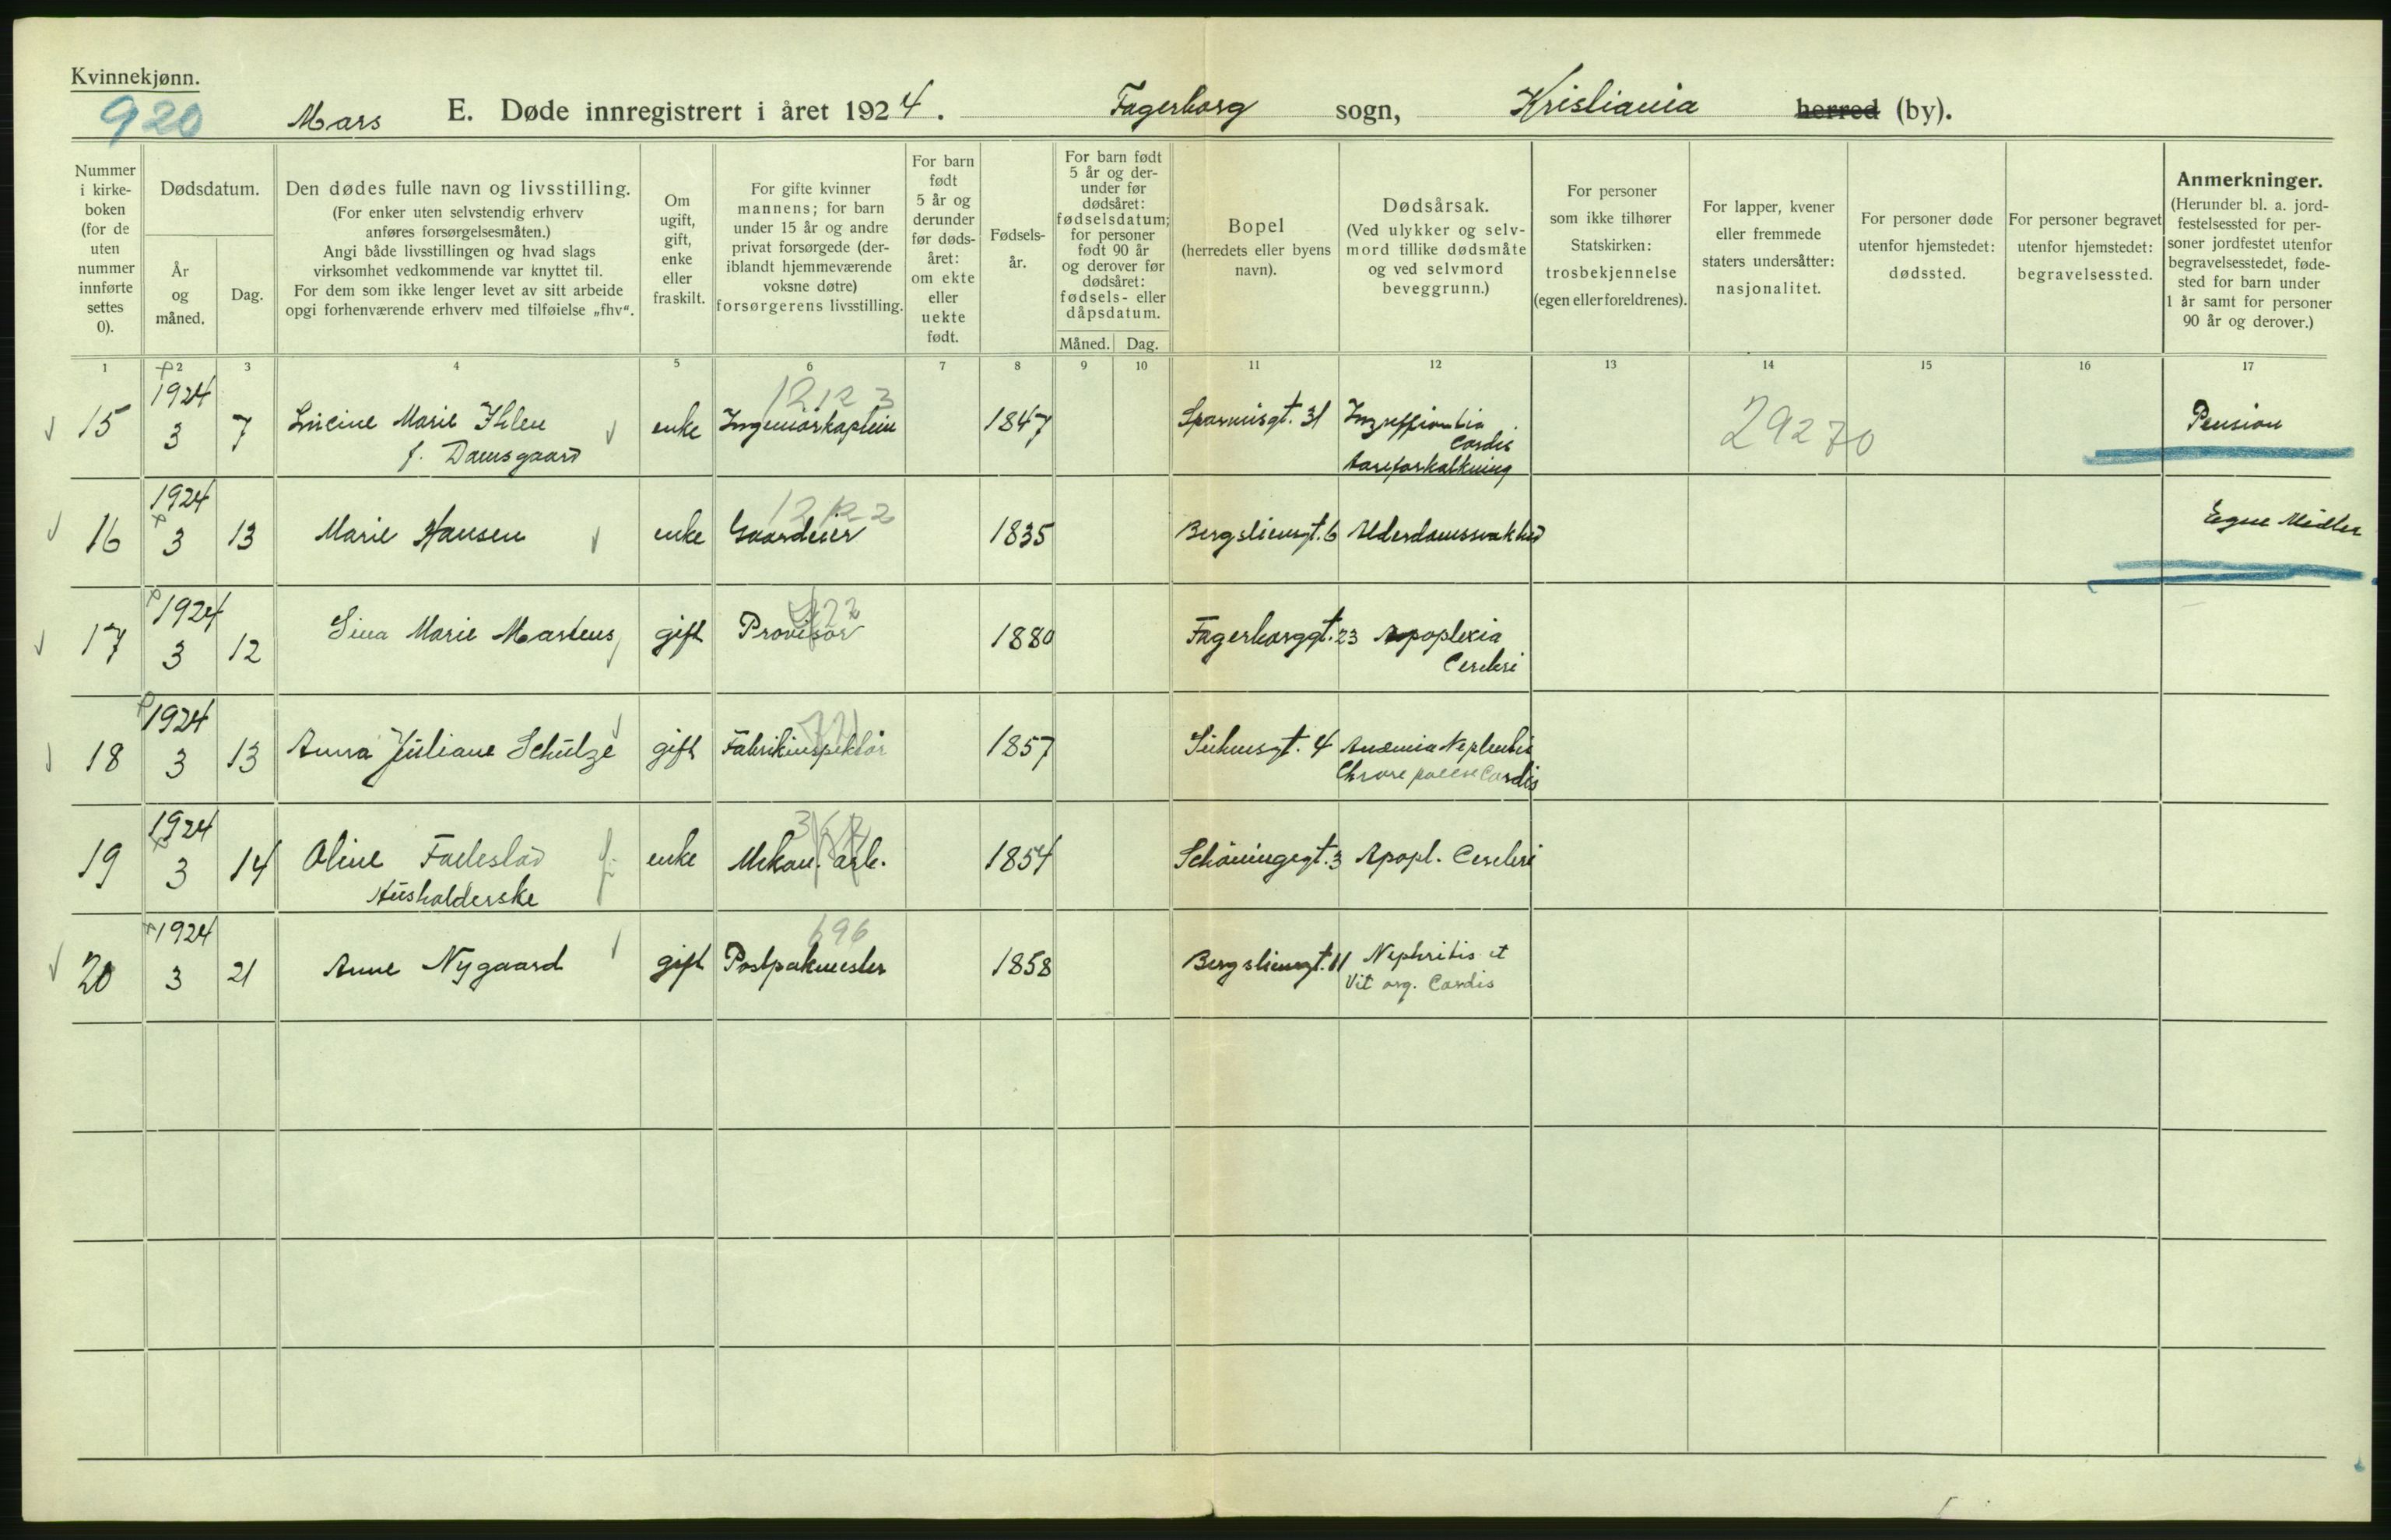 Kvinnekjønn.
920
Mars E. Døde innregistrert i året 1924. Fagerborg sogn, Kristiania herred (by).
Nummer i kirke-boken (for de uten nummer innførte settes 0).
Dødsdatum.
År og måned.
Dag.
Den dødes fulle navn og livsstilling.
(For enker uten selvstendig erhverv
anføres forsørgelsesmåten.)
Angi både livsstillingen og hvad slags
virksomhet vedkommende var knyttet til.
For dem som ikke lenger levet av sitt arbeide
opgi forhenværende erhverv med tilføielse „fhv“.
Om
ugift,
gift,
enke
eller
fraskilt.
For gifte kvinner
mannens; for barn
under 15 år og andre
privat forsørgede (der-
iblandt hjemmeværende
voksne døtre)
forsørgerens livsstilling.
For barn
født
5 år og
derunder
før døds-
året:
om ekte
eller
uekte
født.
Fødsels-
år.
For barn født
5 år og der-
under før
dødsåret:
fødselsdatum;
for personer
født 90 år
og derover før
dødsåret:
fødsels- eller
dåpsdatum.
Måned. Dag.
Bopel
(herredets eller byens
navn).
Dødsårsak.
(Ved ulykker og selv-
mord tillike dødsmåte
og ved selvmord
beveggrunn.)
For personer
som ikke tilhører
Statskirken:
trosbekjennelse
(egen eller foreldrenes).
For lapper, kvener
eller fremmede
staters undersåtter:
nasjonalitet.
For personer døde
utenfor hjemstedet:
dødssted.
For personer begravet
utenfor hjemstedet:
begravelsessted.
Anmerkninger.
(Herunder bl. a. jord-
festelsessted for per-
soner jordfestet utenfor
begravelsesstedet, føde-
sted for barn under
1 år samt for personer
90 år og derover.)
1 2 3 4 5 6 7 8 9 10 11 12 13 14 15 16 17
15 1924 3 7 Marie Ihlen enke Ingeniørkaptein 1847 31 Cordis 29270 Pension
f. Damsgaard Aareforkalkning
16 1924 3 13 Marie Hansen enke Gaardeier 1835 Bergsliensgt. 6 Alderdomssvakhed Egne Midler
17 1924 3 12 Marie Martens gift Provisor 1880 Fagerborggt. 23 Apoplexia
Cerebri
18 1924 3 13 Anna Juliane Schulze gift Fabrikinspektør 1857 Suhmsgt. 4 Anæmia
Cordis
19 1924 3 14 Oline enke Mekan. arb. 1854 Schöningsgt. 3 Apopl. Cerebri
Husholderske
20 1924 3 21 Anne Nygaard gift Postpakmester 1858 Bergsliensgt. 11 Nephritis et
696 Vit org. Cordis